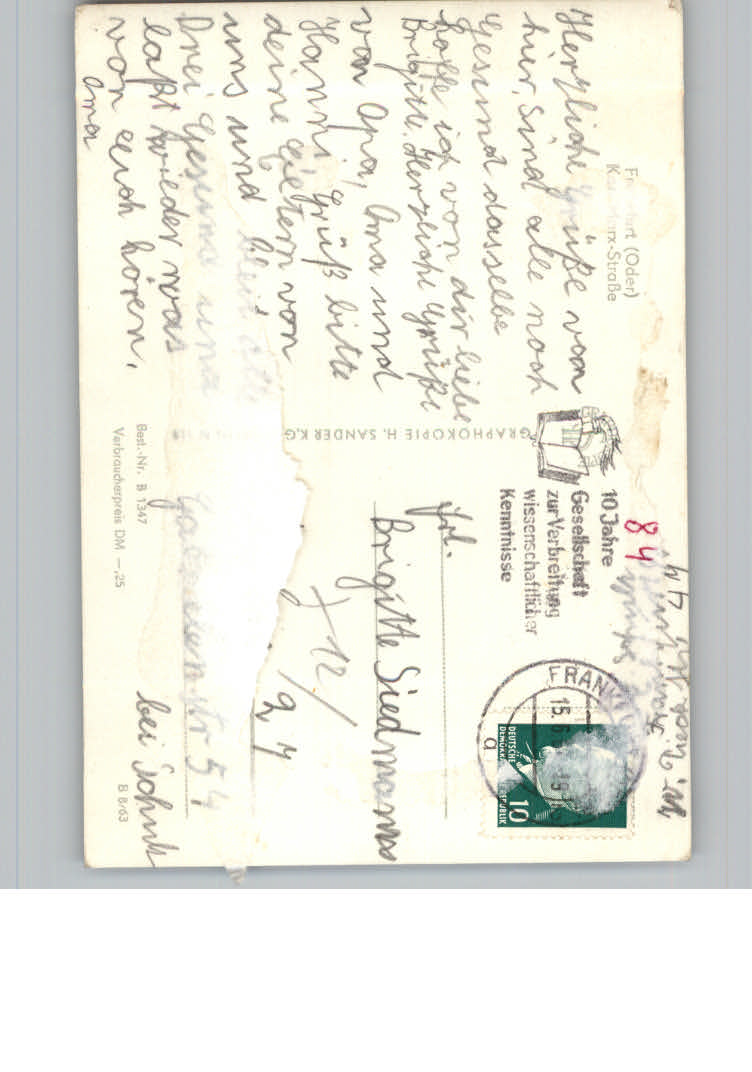 Frankfurt (Oder)
Karl-Marx-Straße
Herzliche Grüße von
hir, Sind alle noch
gesund dasselbe
hoffe ich von dir liebe
Brigitte. Herzliche Grüße
von Opa, Oma und
Hanni, Grüß bitte
deine Eltern von
uns und bleit alle
Drei Gesund und
laßt wieder was
von euch hören.
Oma
GRAPHOKOPIE H. SANDER K.G.
Best.-Nr. B 1347
Verbraucherpreis DM —,25
10 Jahre
Gesellschaft
zur Verbreitung
wissenschaftlicher
Kenntnisse
84
FRANKFURT
15. 6
a
DEUTSCHE
DEMOKRATISCHE REPUBLIK
10
Frl.
Brigitte Siedmann
712/
24
str 54
bei Schulz
B 8/63